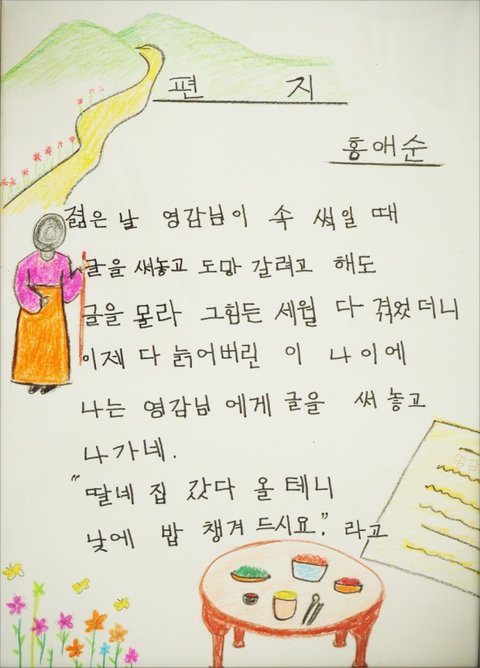 편 지
홍애순
젊은 날 영감님이 속 썩일 때
글을 써놓고 도망 갈려고 해도
글을 몰라 그험든 세월 다 겪었더니
이제 다 늙어버린 이 나이에
나는 영감님에게 글을 써 놓고
나가네.
"딸네 집 갔다 올테니
낮에 밥 챙겨 드시요." 라고